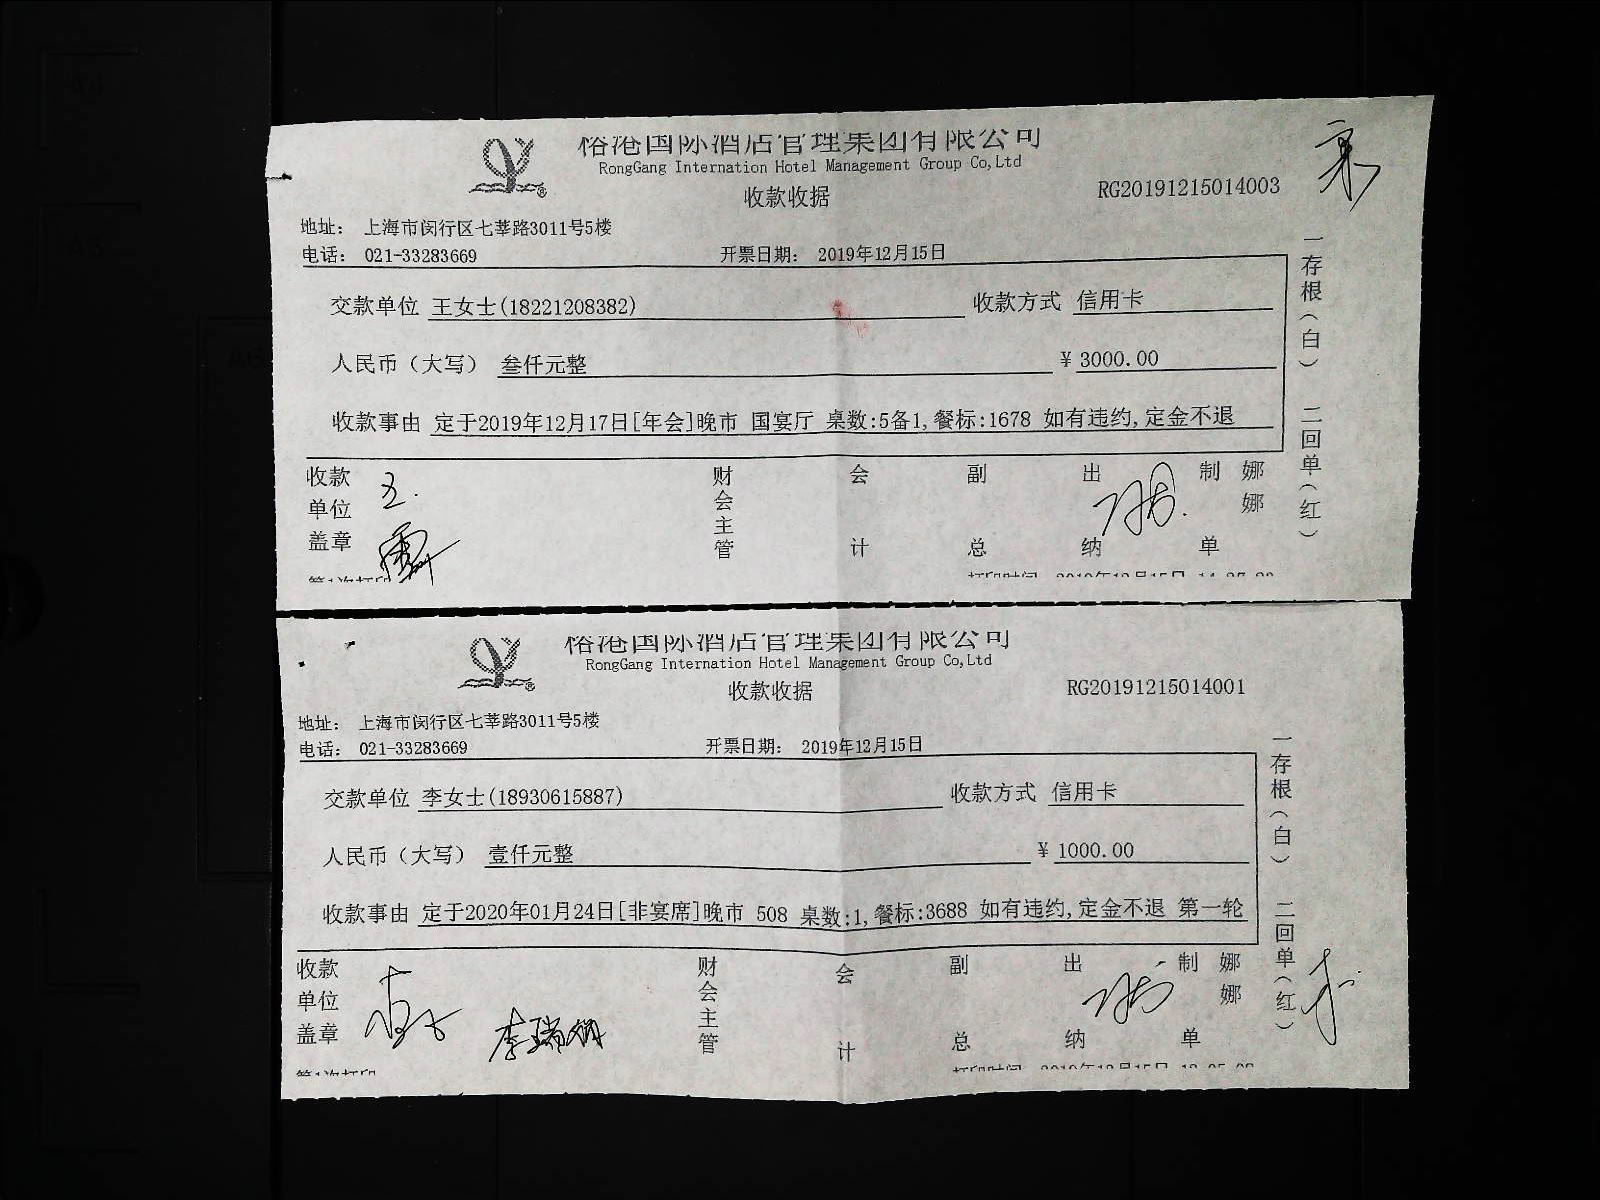 裕港国际酒店管理集团有限公司
RongGang Internation Hotel Management Group Co,Ltd
收款收据
RG20191215014003
地址： 上海市闵行区七莘路3011号5楼
电话： 021-33283669
开票日期： 2019年12月15日
交款单位 王女士(18221208382)
收款方式 信用卡
人民币（大写） 叁仟元整
¥ 3000.00
收款事由 定于2019年12月17日[年会]晚市 国宴厅 桌数:5备1,餐标:1678 如有违约,定金不退
收款单位盖章
财会主管
会计
副总
出纳
制单
娜娜
一存根（白） 二回单（红）
第1次打印
打印时间 2019年12月15日
裕港国际酒店管理集团有限公司
RongGang Internation Hotel Management Group Co,Ltd
收款收据
RG20191215014001
地址： 上海市闵行区七莘路3011号5楼
电话： 021-33283669
开票日期： 2019年12月15日
交款单位 李女士(18930615887)
收款方式 信用卡
人民币（大写） 壹仟元整
¥ 1000.00
收款事由 定于2020年01月24日[非宴席]晚市 508 桌数:1,餐标:3688 如有违约,定金不退 第一轮
收款单位盖章
财会主管
会计
副总
出纳
制单
娜娜
一存根（白） 二回单（红）
第1次打印
打印时间 2019年12月15日